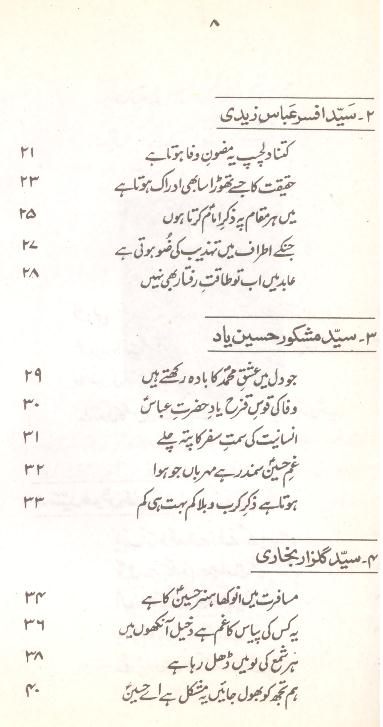 ۸
۲۔ سیّد افسر عباس زیدی
کتنا دلچسپ یہ مضمونِ وفا ہوتا ہے ۲۱
حقیقت کا جسے تھوڑا سا بھی ادراک ہوتا ہے ۲۳
میں ہر مقام پہ ذکرِ امامؑ کرتا ہوں ۲۵
جنکے اطراف میں تہذیب کی ضُو ہوتی ہے ۲۷
عابد میں اب تو طاقتِ رفتار بھی نہیں ۲۸
۳۔ سیّد مشکور حسین یاد
جو دل میں عشقِ محمدؐ کا بادہ رکھتے ہیں ۲۹
وفا کی قوسِ قزح یادِ حضرتِ عباسؑ ۳۰
انسانیت کی سمتِ سفر کا پتہ چلے ۳۱
غمِ حسینؑ سمندر ہے مہرباں جو ہوا ۳۲
ہوتا ہے ذکرِ کرب و بلا کم بہت ہی کم ۳۳
۴۔ سیّد گلزار بخاری
مسافرت میں انوکھا ہنر حسینؑ کا ہے ۳۴
یہ کس کی پیاس کا غم ہے دخیل آنکھوں میں ۳۶
ہنر شمع کی لو میں ڈھل رہا ہے ۳۸
ہم تجھ کو بھول جائیں یہ مشکل ہے اے حسینؑ ۴۰